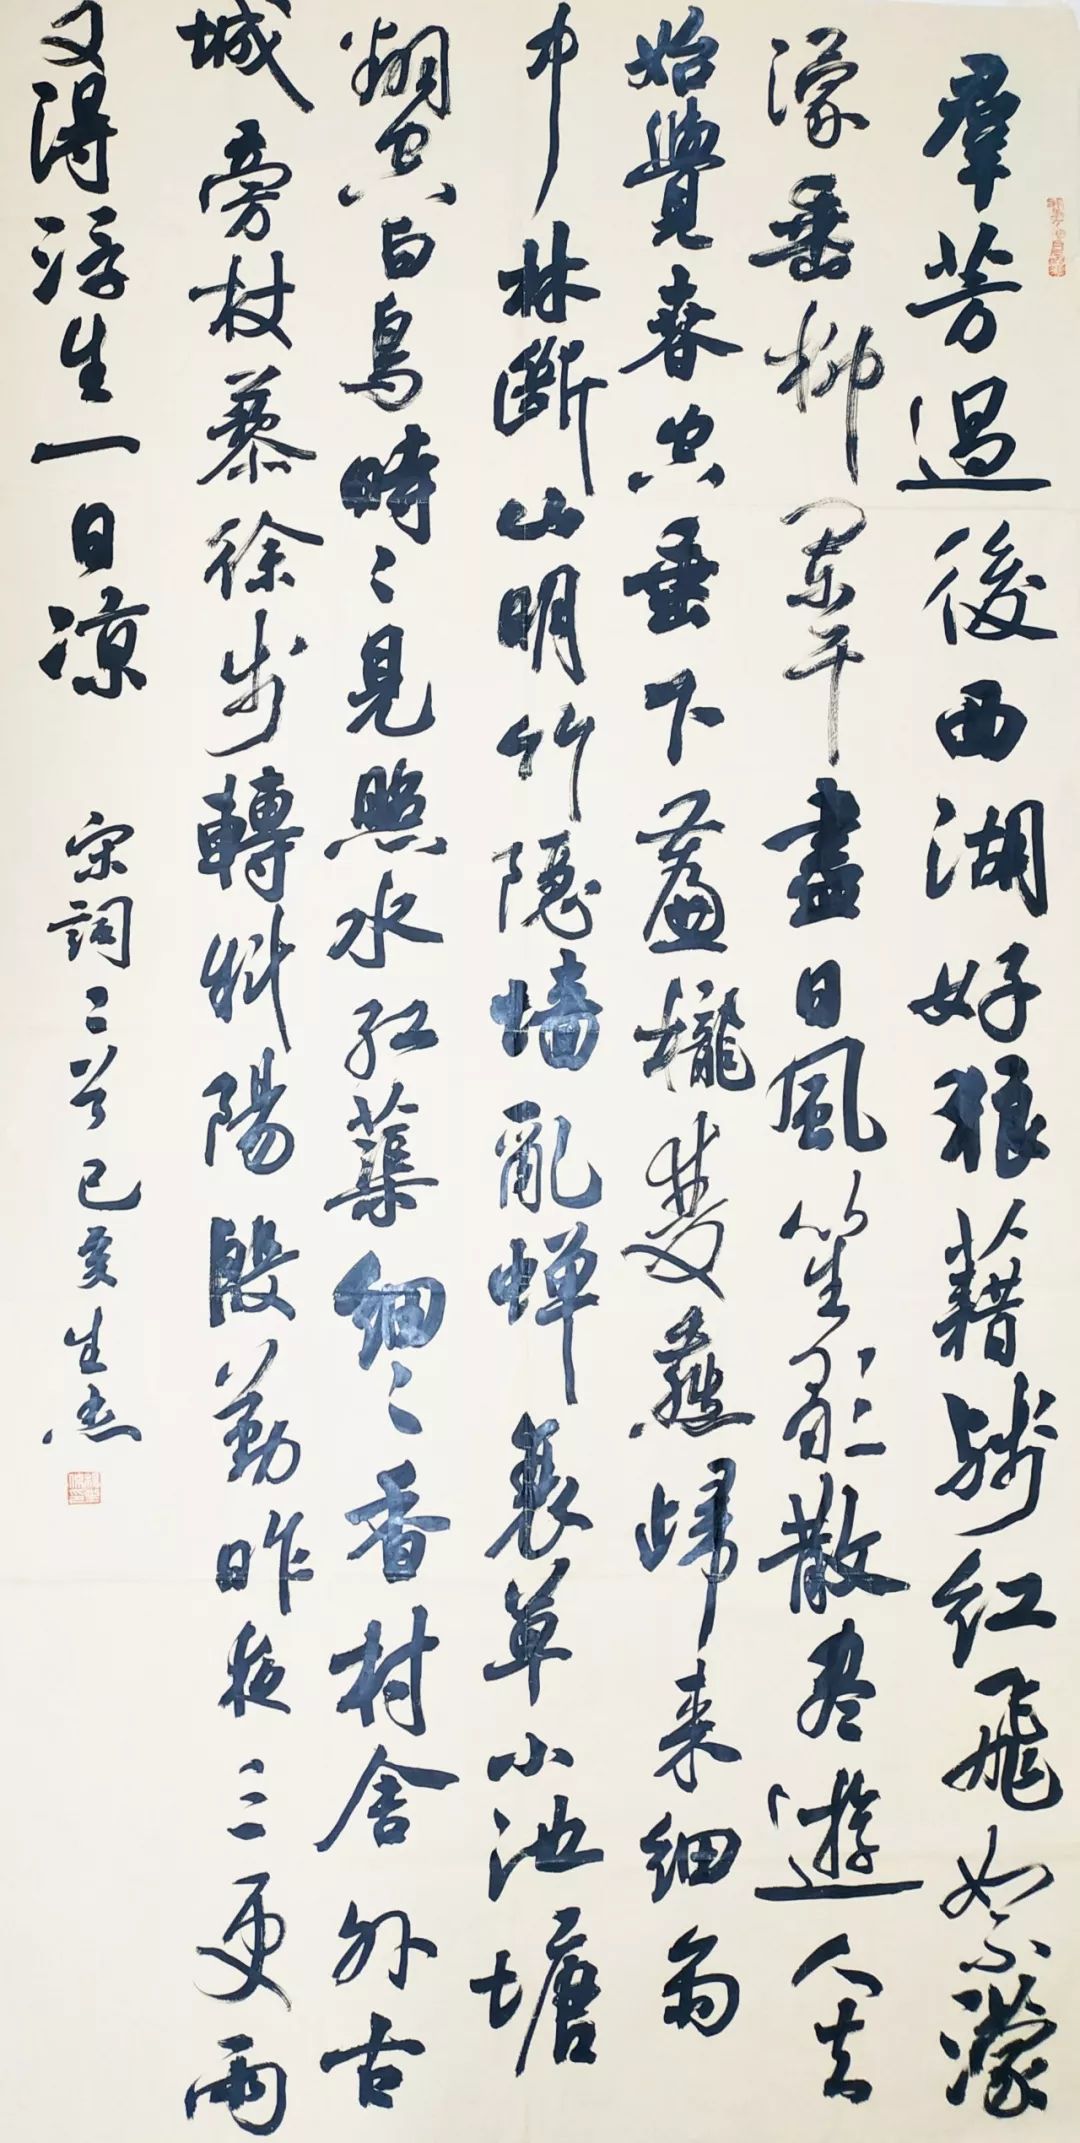 羣芳過後西湖好狼藉殘红飛絮濛
濛垂柳闌干盡日風笙歌散尽遊人去
始覺春空垂下簾櫳雙燕歸来细雨
中林斷山明竹隱墙亂蝉衰草小池塘
翻空白鳥時〻見照水红蕖细〻香村舍外古
城旁杖藜徐步轉斜陽殷勤昨夜三更雨
又得浮生一日凉
宋詞二首己亥生杰